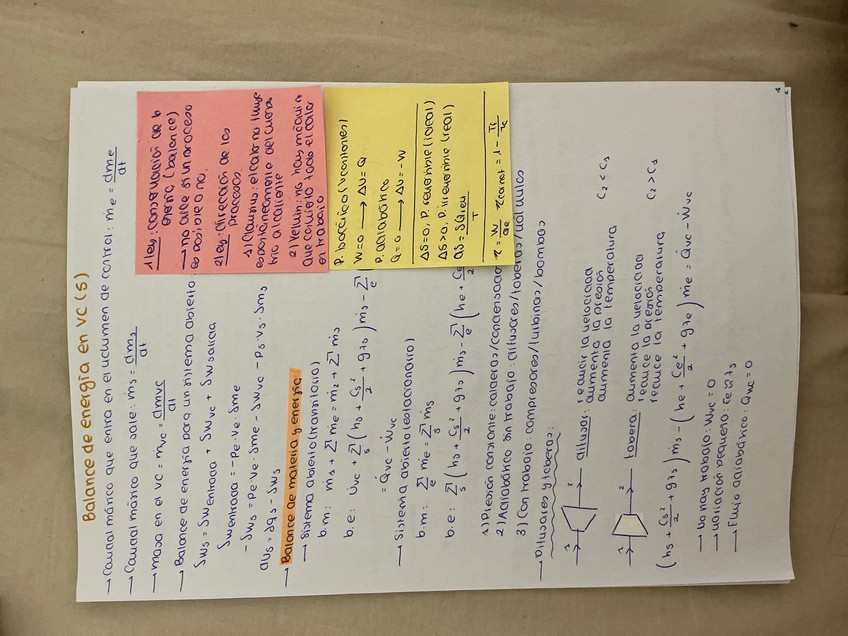 Balance de energía en VC (5)
→ Caudal másico que entra en el volumen de control: ṁe = dme/dt
→ Caudal másico que sale: ṁs = dms/dt
→ masa en el VC = ṁvc = dmvc/dt
→ Balance de energía para un sistema abierto:
δWs = δWentrada + δWvc + δWsalida
δWentrada = -Pe·ve·δme
-δWs = Pe·ve·δme - δWvc - Ps·vs·δms
→ Balance de materia y energía
→ Sistema abierto (transitorio)
b.m: ṁs + Σe ṁe = ṁ2 + Σ ṁs
b.e: U̇vc + Σs (hs + Cs²/2 + gzs) ṁs - Σe
= Q̇vc - Ẇvc
→ Sistema abierto (estacionario)
b.m: Σe ṁe = Σs ṁs
b.e: Σs (hs + Cs²/2 + gzs) ṁs - Σe (he +
1) Presión constante: calderas/condensado
2) Adiabático sin trabajo: difusores/toberas/válvulas
3) Con trabajo: compresores/turbinas/bombas
→ Difusores y toberas:
1 2 difusor: reducir la velocidad
aumenta la presión
aumenta la temperatura C2 < C1
1 2 tobera: aumenta la velocidad
reduce la presión
reduce la temperatura C2 > C1
(hs + Cs²/2 + gzs) ṁs - (he + Ce²/2 + gze) ṁe = Q̇vc - Ẇvc
→ No hay trabajo: Ẇvc = 0
→ Variación pequeña: ze ≈ zs
→ Flujo adiabático: Q̇vc = 0
1 ley: conservación de la
energía (balance)
→ no dice si un proceso
es posible o no.
2 ley: dirección de los
procesos
1) Clausius: el calor no fluye
espontáneamente del cuerpo
frío al caliente
2) Kelvin: no hay máquina
que convierta todo el calor
en trabajo
P. isocórico (V constante)
W = 0 → ΔU = Q
P. adiabático
Q = 0 → ΔU = -W
ΔS = 0, P. reversible (ideal)
ΔS > 0, P. irreversible (real)
dS = δQrev/T